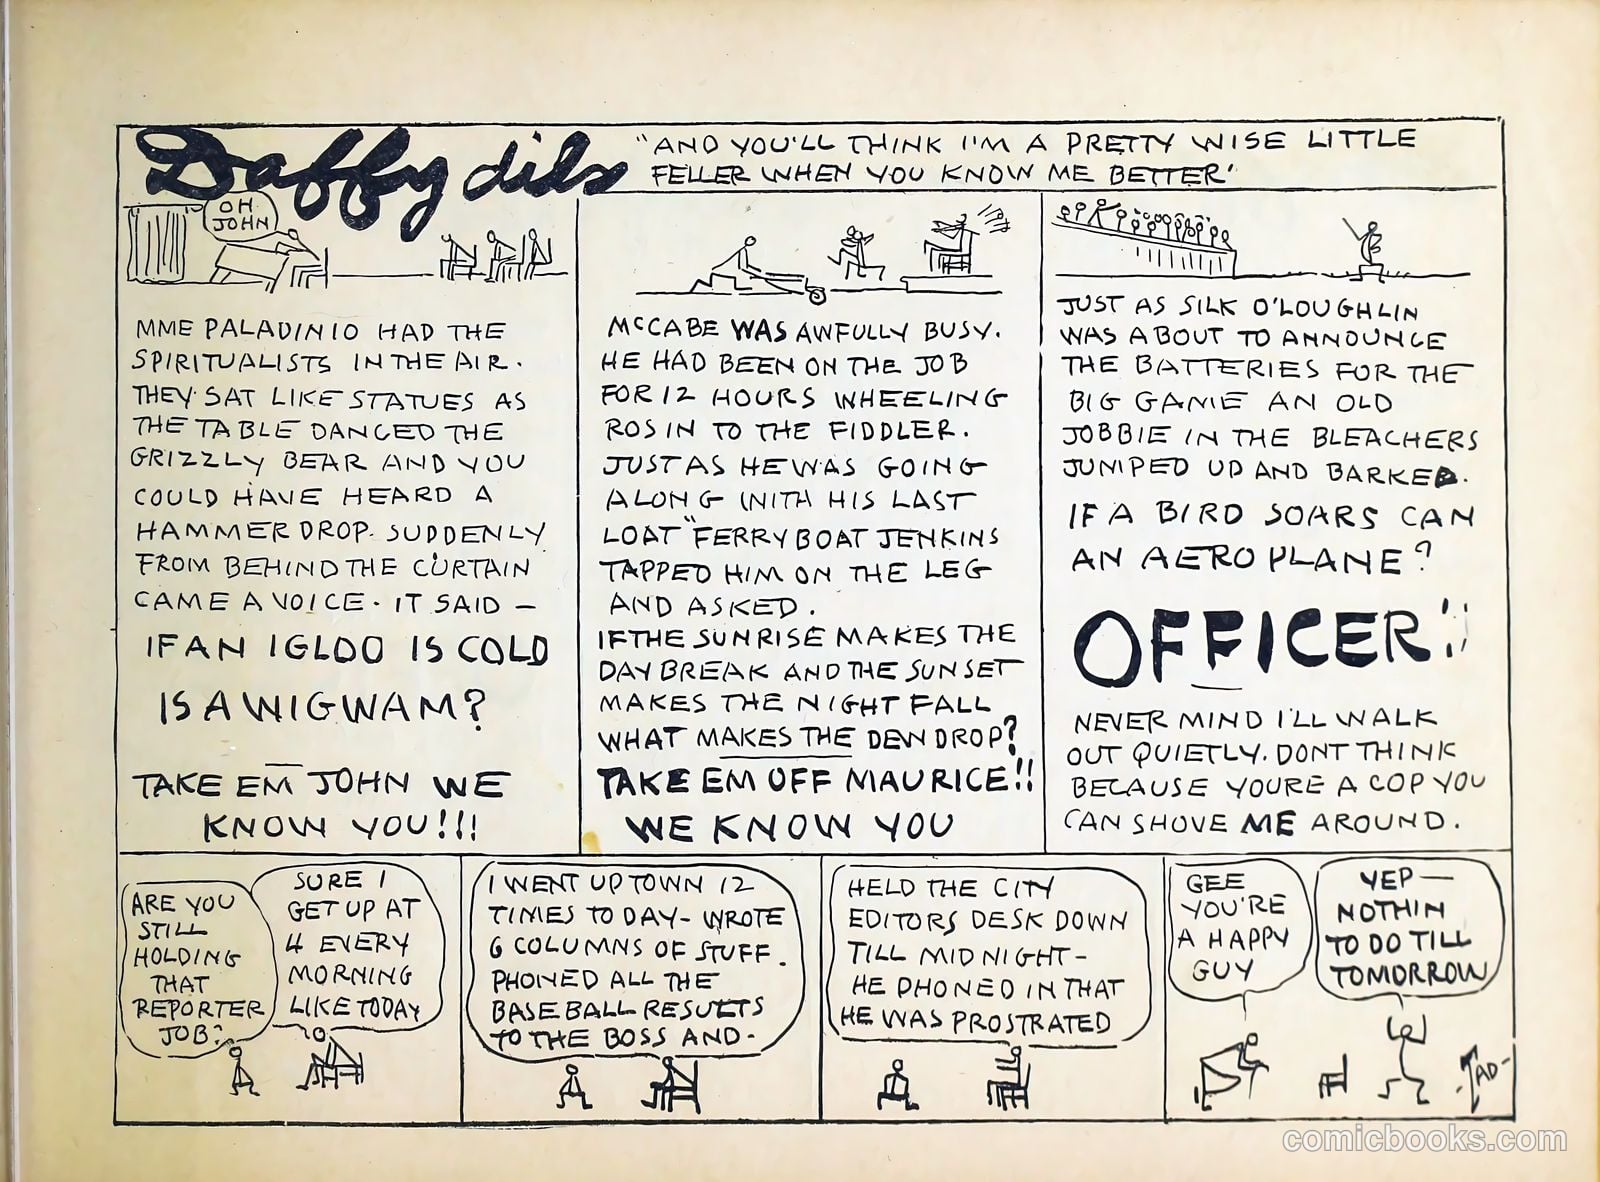 Daffydils
"AND YOU'LL THINK I'M A PRETTY WISE LITTLE
FELLER WHEN YOU KNOW ME BETTER'
OH
JOHN
MME PALADINIO HAD THE
SPIRITUALISTS IN THE AIR.
THEY SAT LIKE STATUES AS
THE TABLE DANCED THE
GRIZZLY BEAR AND YOU
COULD HAVE HEARD A
HAMMER DROP. SUDDENLY
FROM BEHIND THE CURTAIN
CAME A VOICE. IT SAID —
IF AN IGLOO IS COLD
IS A WIGWAM?
TAKE EM JOHN WE
KNOW YOU!!!
McCABE WAS AWFULLY BUSY.
HE HAD BEEN ON THE JOB
FOR 12 HOURS WHEELING
ROSIN TO THE FIDDLER.
JUST AS HE WAS GOING
ALONG WITH HIS LAST
LOAT "FERRYBOAT JENKINS
TAPPED HIM ON THE LEG
AND ASKED.
IF THE SUNRISE MAKES THE
DAY BREAK AND THE SUNSET
MAKES THE NIGHT FALL
WHAT MAKES THE DEW DROP?
TAKE EM OFF MAURICE!!
WE KNOW YOU
JUST AS SILK O'LOUGHLIN
WAS ABOUT TO ANNOUNCE
THE BATTERIES FOR THE
BIG GAME AN OLD
JOBBIE IN THE BLEACHERS
JUMPED UP AND BARKED.
IF A BIRD SOARS CAN
AN AEROPLANE?
OFFICER!!
NEVER MIND I'LL WALK
OUT QUIETLY. DONT THINK
BECAUSE YOURE A COP YOU
CAN SHOVE ME AROUND.
ARE YOU
STILL
HOLDING
THAT
REPORTER
JOB?
SURE I
GET UP AT
4 EVERY
MORNING
LIKE TODAY
I WENT UPTOWN 12
TIMES TO DAY- WROTE
6 COLUMNS OF STUFF.
PHONED ALL THE
BASEBALL RESULTS
TO THE BOSS AND-
HELD THE CITY
EDITORS DESK DOWN
TILL MIDNIGHT-
HE PHONED IN THAT
HE WAS PROSTRATED
GEE
YOU'RE
A HAPPY
GUY
YEP—
NOTHIN
TO DO TILL
TOMORROW
-TAD-
comicbooks.com